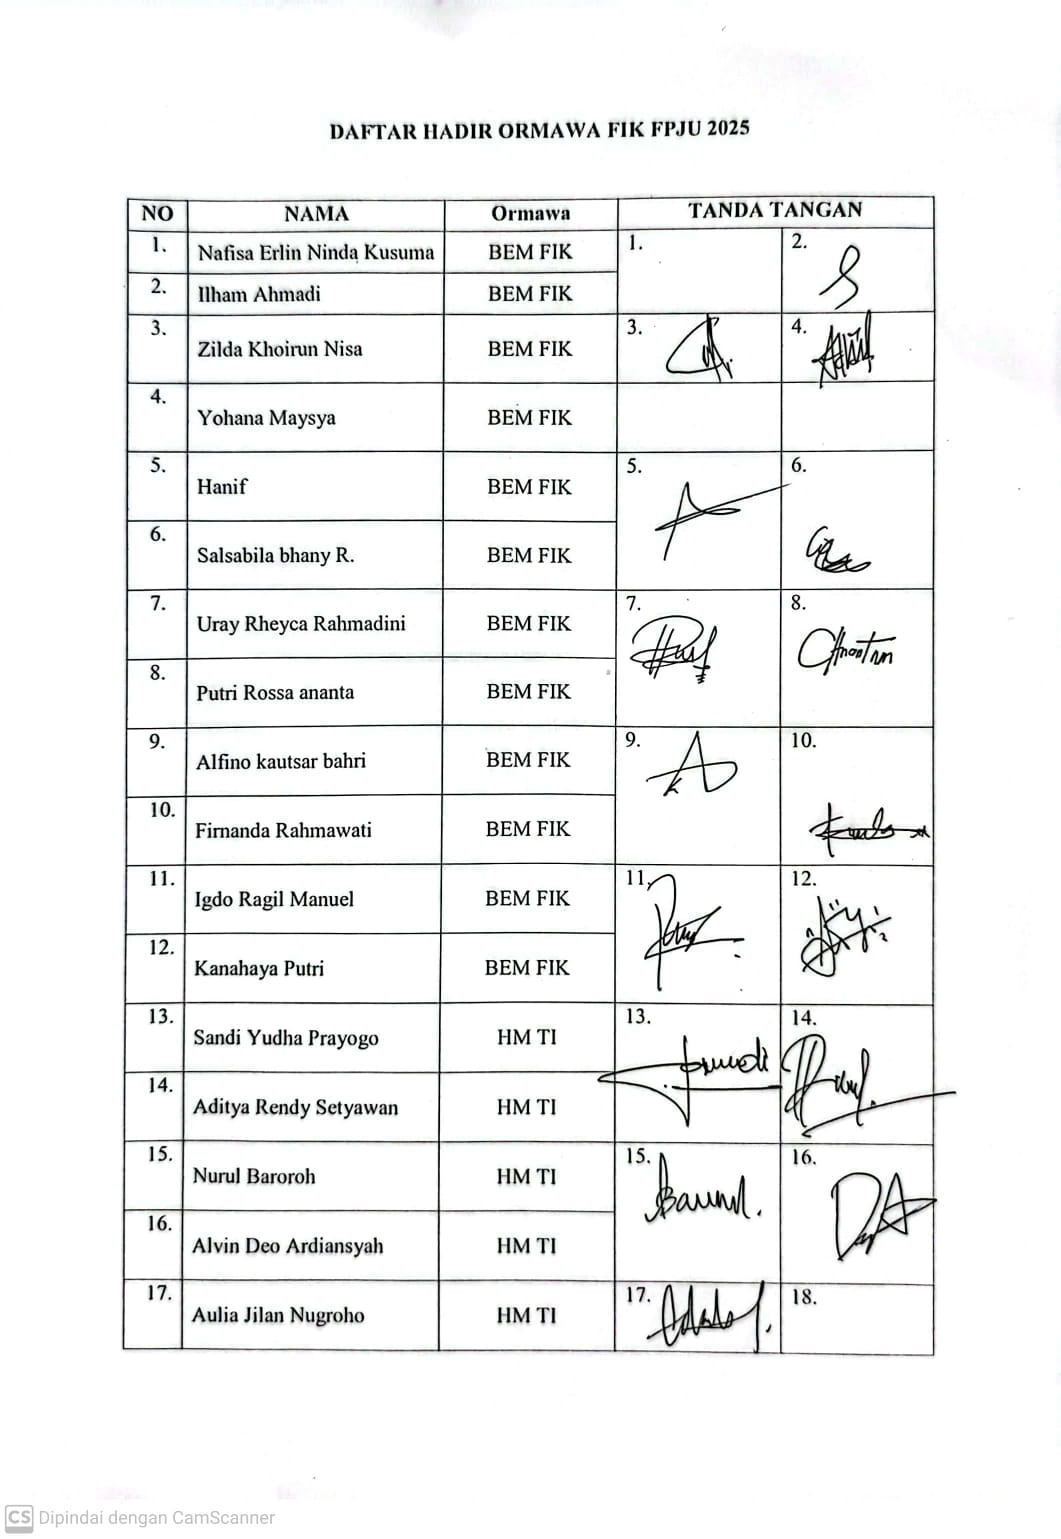 DAFTAR HADIR ORMAWA FIK FPJU 2025
NO NAMA Ormawa TANDA TANGAN
1. Nafisa Erlin Ninda Kusuma BEM FIK 1. 2.
2. Ilham Ahmadi BEM FIK
3. Zilda Khoirun Nisa BEM FIK 3. 4.
4. Yohana Maysya BEM FIK
5. Hanif BEM FIK 5. 6.
6. Salsabila bhany R. BEM FIK
7. Uray Rheyca Rahmadini BEM FIK 7. 8.
8. Putri Rossa ananta BEM FIK
9. Alfino kautsar bahri BEM FIK 9. 10.
10. Firnanda Rahmawati BEM FIK
11. Igdo Ragil Manuel BEM FIK 11. 12.
12. Kanahaya Putri BEM FIK
13. Sandi Yudha Prayogo HM TI 13. 14.
14. Aditya Rendy Setyawan HM TI
15. Nurul Baroroh HM TI 15. 16.
16. Alvin Deo Ardiansyah HM TI
17. Aulia Jilan Nugroho HM TI 17. 18.
CS Dipindai dengan CamScanner